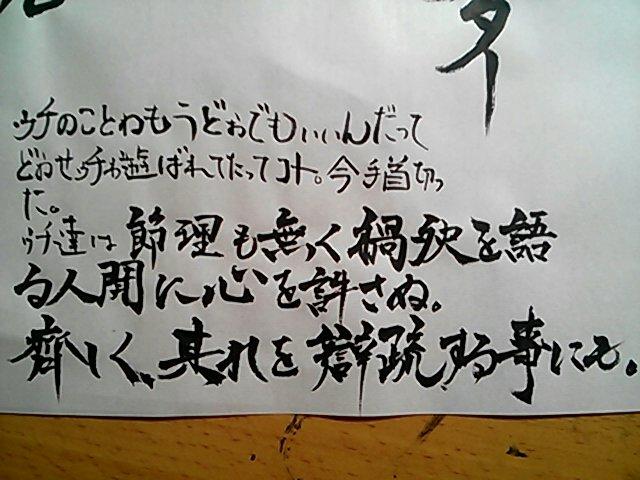 タ
ウチのことゎもうどぉでもぃぃんだって
どぉせゥチゎ遊ばれてたってコト。今手首切っ
た。
ゥチ達は節理も無く禍殃を語
る人間に心を許さぬ。
齊しく、其れを辯疏する事にも。